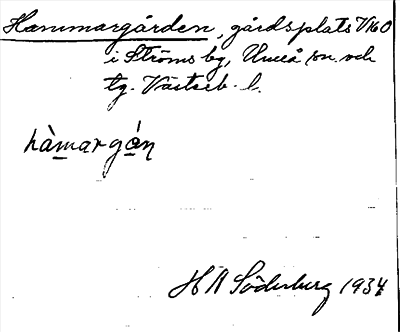 Hammargården, gårdsplats V160
i Ströms by, Umeå sn. och
tg. Västerb. l.
hàmargán
H A Söderberg 1934